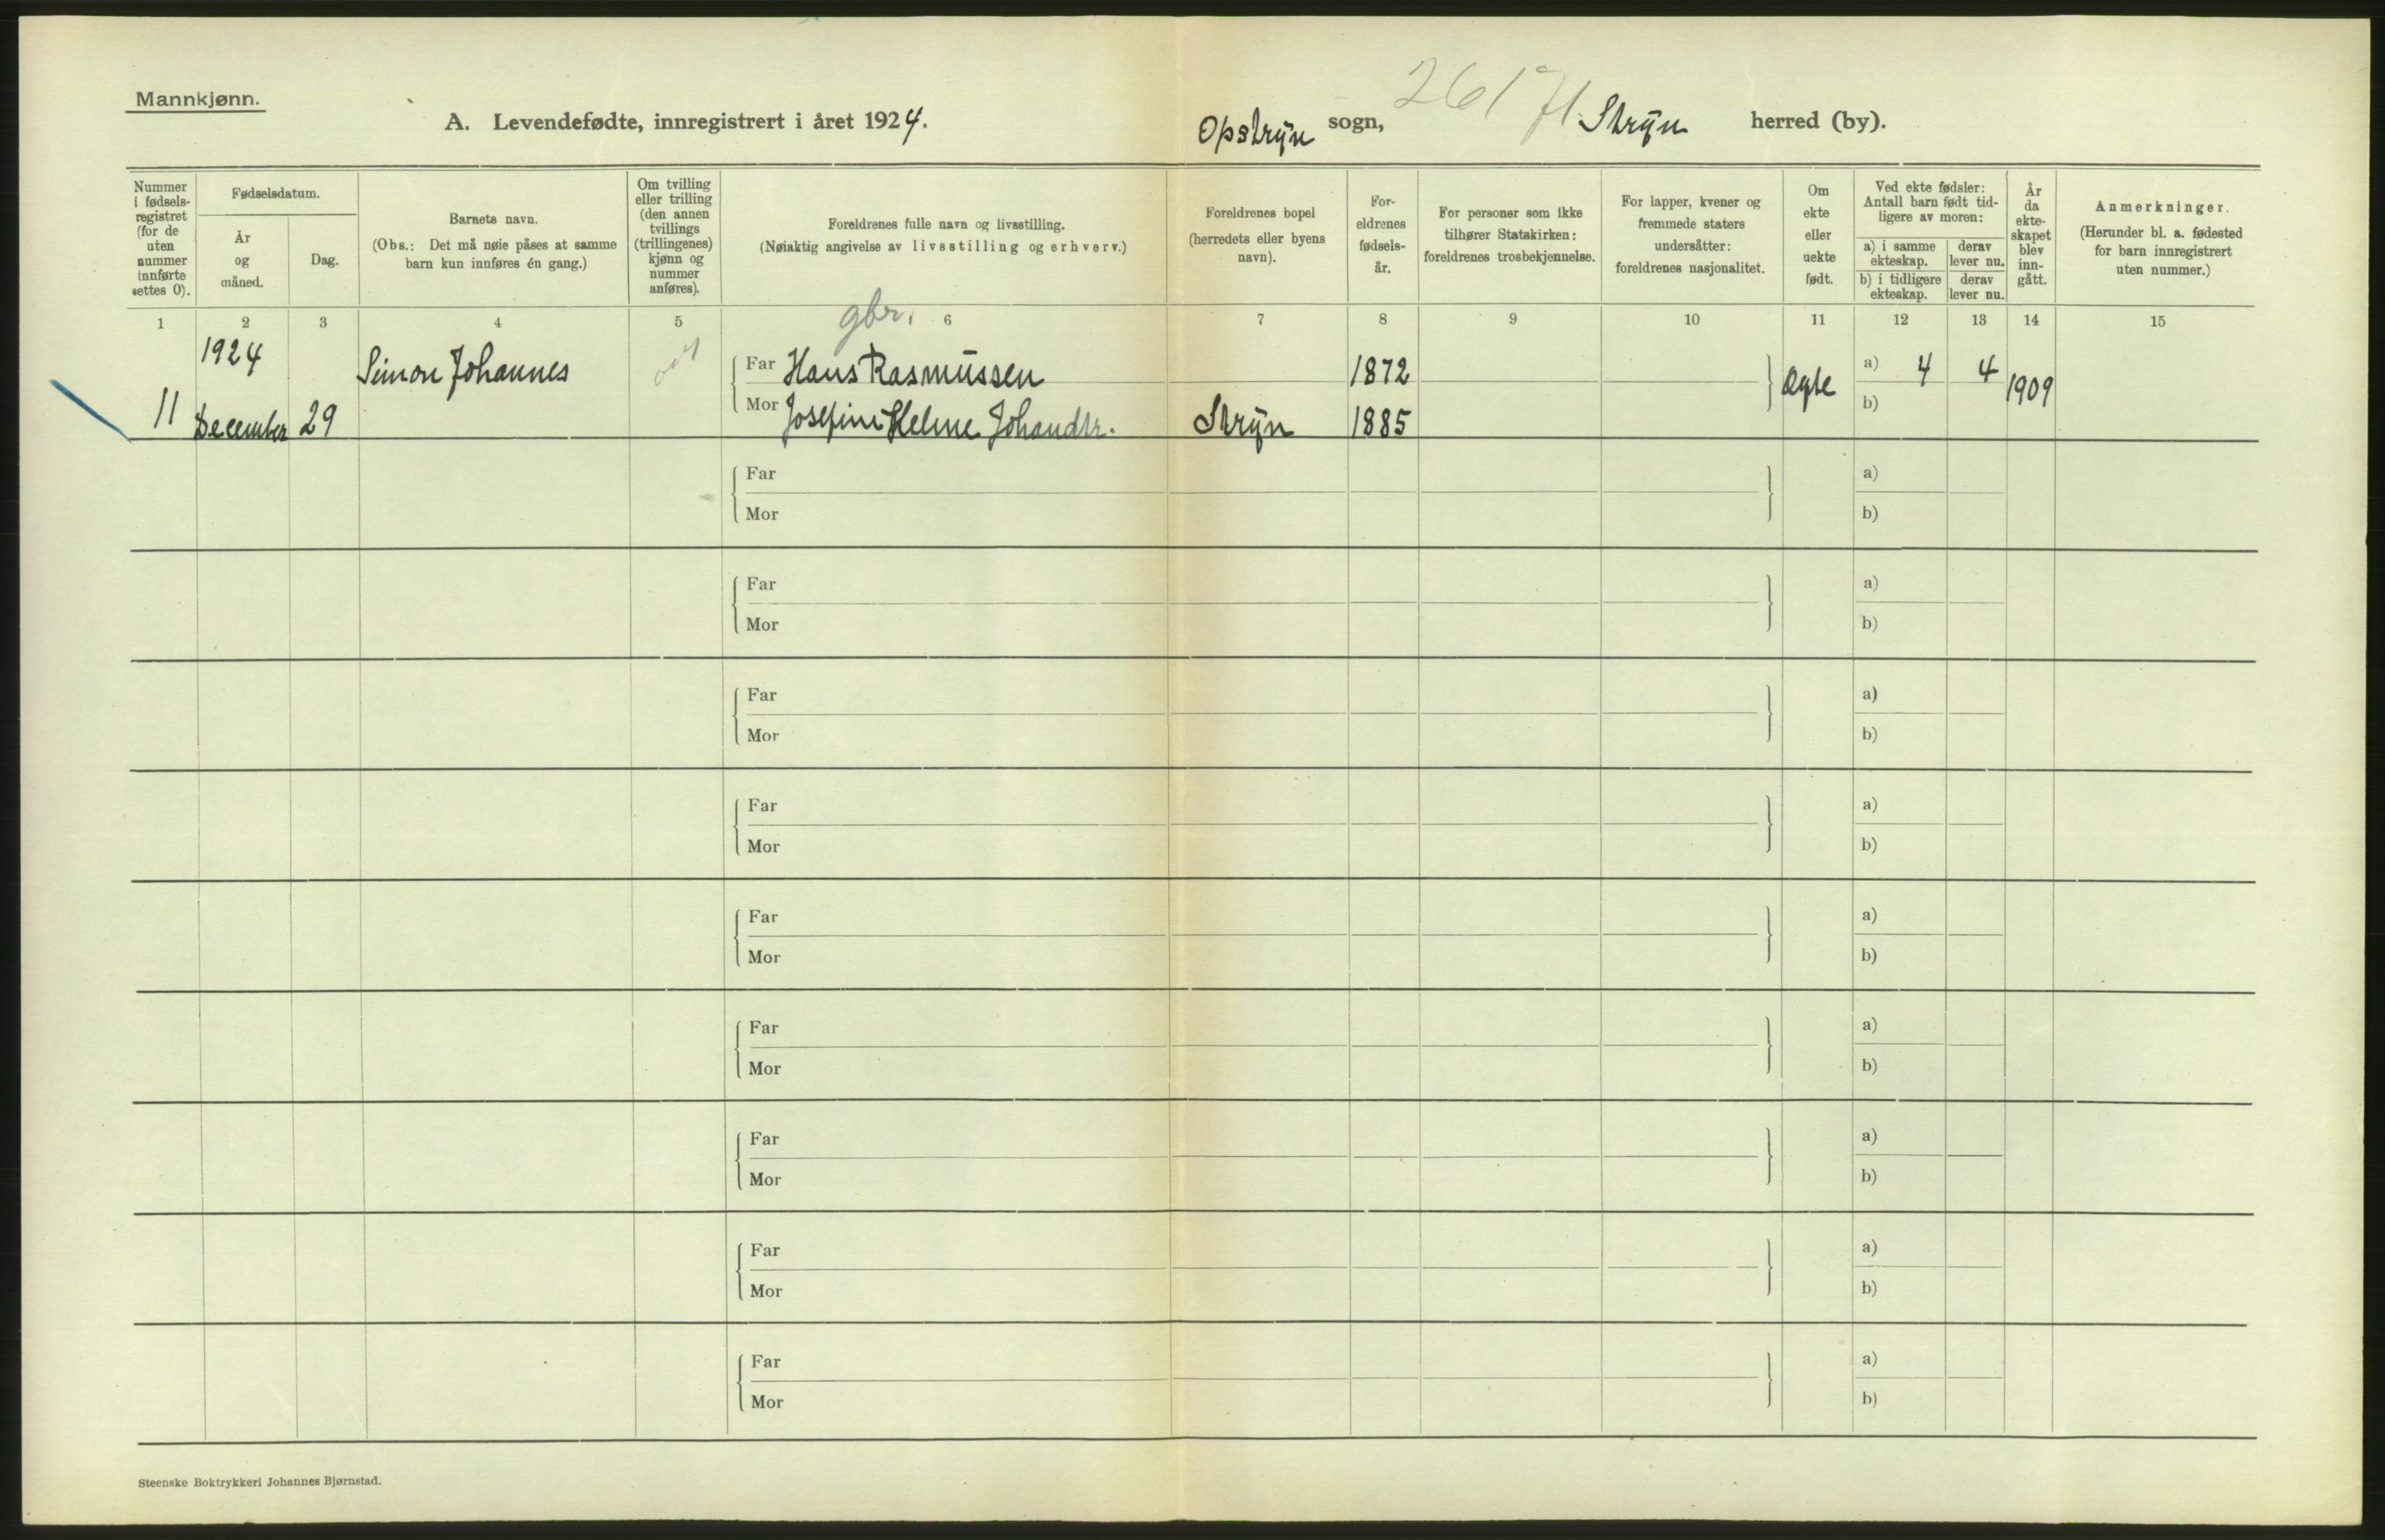 Mannkjønn.
A. Levendefødte, innregistrert i året 1924.
Opstryn sogn, Stryn herred (by).
2617
Nummer i fødsels-registret (for de uten nummer innførte settes 0).
Fødselsdatum.
År og måned.
Dag.
Barnets navn.
(Obs.: Det må nøie påses at samme barn kun innføres én gang.)
Om tvilling eller trilling (den annen tvillings (trillingenes) kjønn og nummer anføres).
Foreldrenes fulle navn og livsstilling.
(Nøiaktig angivelse av livsstilling og erhverv.)
Foreldrenes bopel (herredets eller byens navn).
For-eldrenes fødsels-år.
For personer som ikke tilhører Statskirken: foreldrenes trosbekjennelse.
For lapper, kvener og fremmede staters undersåtter: foreldrenes nasjonalitet.
Om ekte eller uekte født.
Ved ekte fødsler: Antall barn født tid-ligere av moren:
a) i samme ekteskap.
derav lever nu.
b) i tidligere ekteskap.
derav lever nu.
År da ekte-skapet blev inn-gått.
Anmerkninger.
(Herunder bl. a. fødested for barn innregistrert uten nummer.)
1 2 3 4 5 6 7 8 9 10 11 12 13 14 15
gbr.
1924 Simon Johannes Far Hans Rasmussen 1872 Ægte a) 4 4 1909
11 December 29 Mor Josefine Helene Johandtr. Stryn 1885 b)
Far a)
Mor b)
Far a)
Mor b)
Far a)
Mor b)
Far a)
Mor b)
Far a)
Mor b)
Far a)
Mor b)
Far a)
Mor b)
Far a)
Mor b)
Far a)
Mor b)
Steenske Boktrykkeri Johannes Bjørnstad.